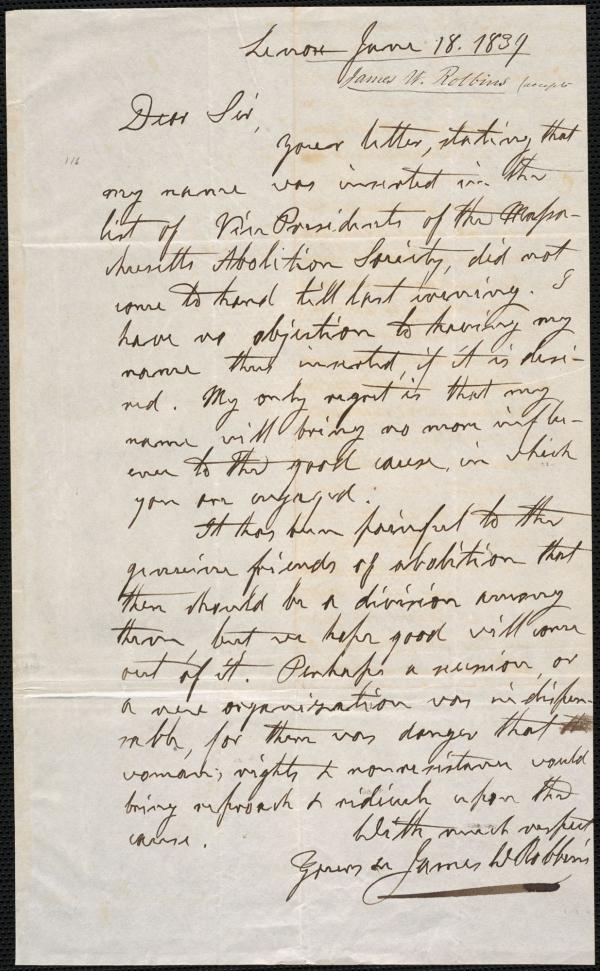 Lenox June 18. 1839
James W. Robbins (accepts
Dear Sir,
116
Your letter, stating, that
my name was inserted in the
list of Vice Presidents of the Massa-
chusetts Abolition Society, did not
come to hand till last evening. I
have no objection to having my
name thus inserted, if it is desi-
red. My only regret is that my
name will bring no more influ-
ence to the good cause, in which
you are engaged.
It has been painful to the
genuine friends of abolition that
there should be a division among
them, but we hope good will come
out of it. Perhaps a secession, or
a new organization was indispen-
sable, for there was danger that
woman's rights & nonresistance would
bring reproach & ridicule upon the
cause.
With much respect
Yours &c James W Robbins